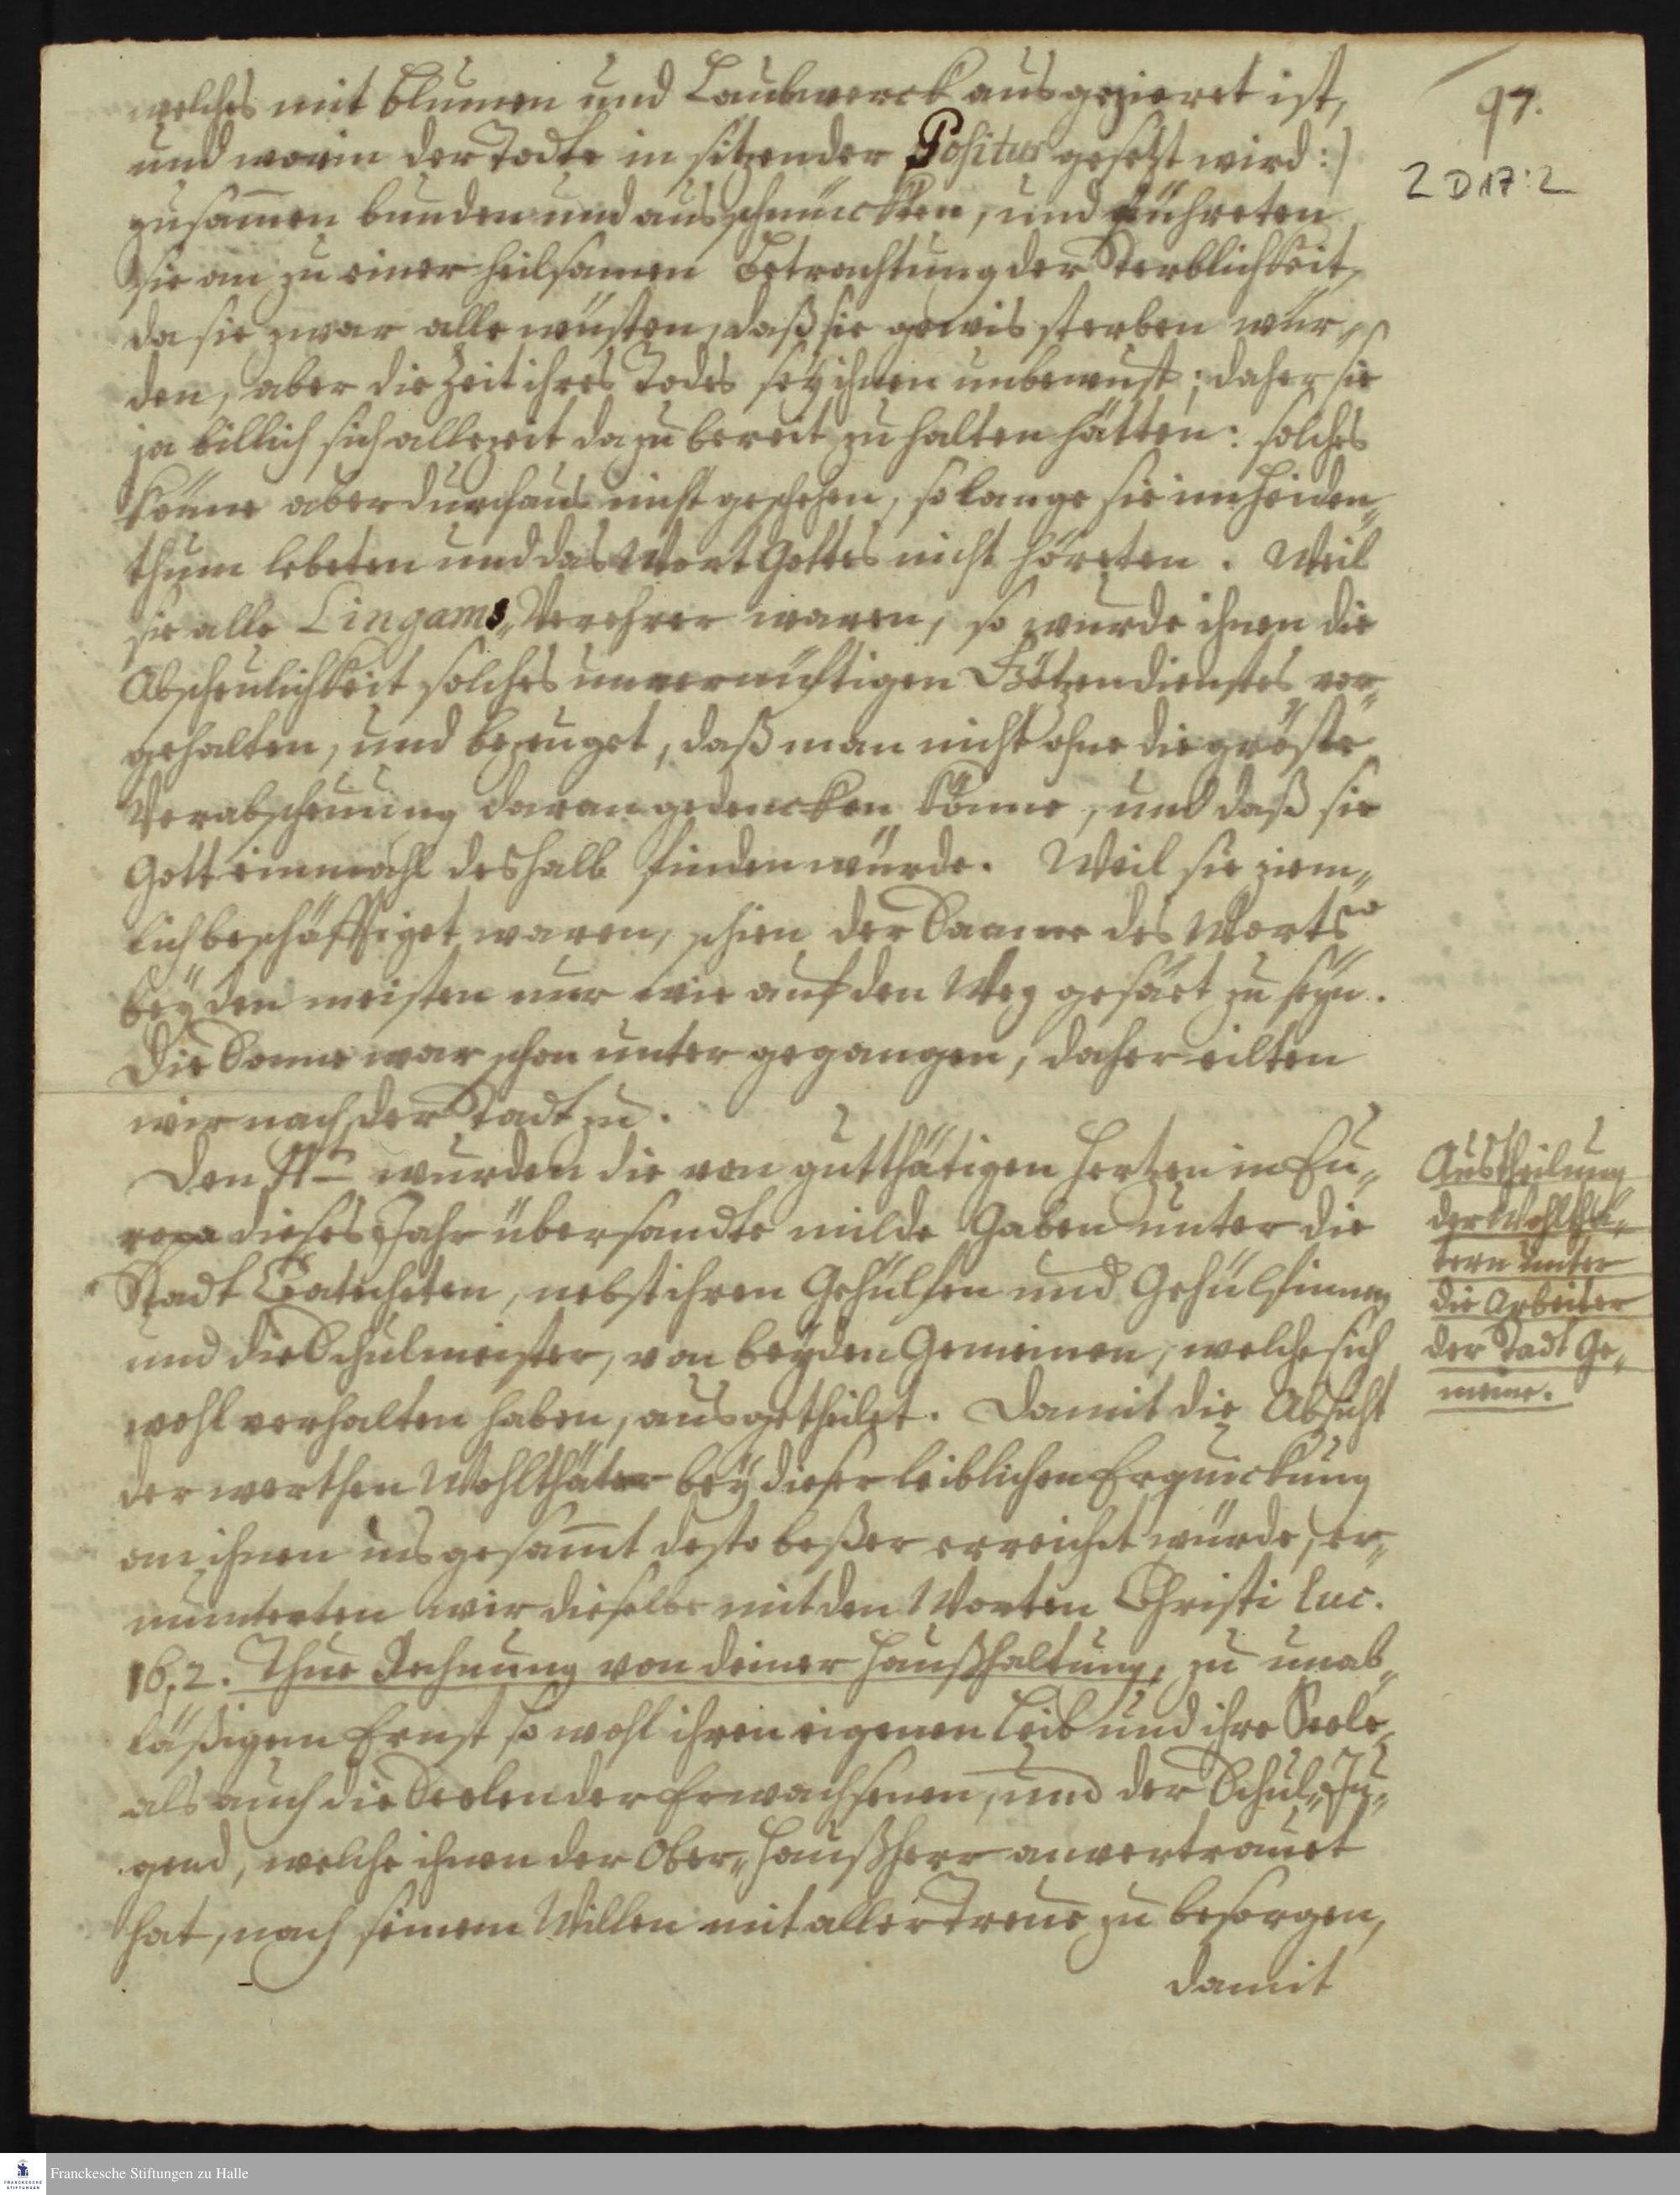 97.
2 D 17:2
welches mit Blumen und Laubwerck ausgezieret ist,
und worin der Todte in sitzender Positur gesetzt wird:)
zusam̄en bunden und ausschmückten, und führeten
sie an zu einer heilsamen Betrachtung der Sterblichkeit,
da sie zwar alle wüsten, daß sie gewis sterben wür„
den, aber die Zeit ihres Todes sey ihnen unbewust; daher sie
ja billich sich allezeit dazu bereit zu halten hätten: solches
könne aber durchaus nicht geschehen, so lange sie im Heiden„
thum lebeten und das Wort Gottes nicht höreten. Weil
sie alle Lingams„Verehrer waren, so wurde ihnen die
Abscheulichkeit solches unvernünftigen Götzendienstes vor„
gehalten, und bezeuget, daß man nicht ohne die gröste
Verabscheuung daran gedencken könne, und daß sie
Gott einmahl deshalb finden würde. Weil sie ziem„
lich beschäfftiget waren, schien der Saame des Worts
bey den meisten nur wie auf den Weg gesäet zu seyn.
Die Sonne war schon unter gegangen, daher eilten
wir nach der Stadt zu.
Den 11t wurden die von gutthätigen Hertzen in Eu„
ropa dieses Jahr übersandte milde Gaben unter die
Stadt Catecheten, nebst ihren Gehülfen und Gehülfinnen
und die Schulmeister, von beyden Gemeinen, welche sich
wohl verhalten haben, ausgetheilet. Damit die Absicht
der werthen Wohlthäter bey dieser leiblichen Erquickung
an ihnen insgesam̄t desto beßer erreicht würde, er„
munterten wir dieselbe mit den Worten Christi Luc.
16,2. Thue Rechnung von deiner Haußhaltung, zu unab„
läßigem Ernst so wohl ihren eigenen Leib und ihre Seele,
als auch die Seelen der Erwachsenen, und der Schul„Ju„
gend, welche ihnen der Ober„Haußherr anvertrauet
hat, nach seinem Willen mit aller Treue zu besorgen,
damit
Austheilung
der Wohltha„
ten unter
die Arbeiter
der Stadt Ge„
meine.
Franckesche Stiftungen zu Halle
FRANCKESCHE
STIFTUNGEN